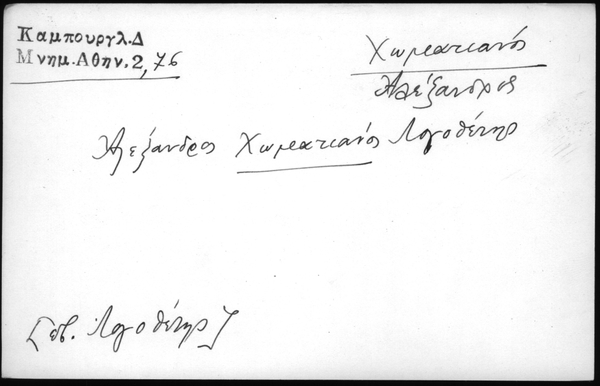 Καμπουργλ.Δ
Μνημ.Αθην.2,76
Χωματιανός
Αλέξανδρος
Αλέξανδρος Χωματιανός Λογοθέτης
[εβ. Λογοθέτης]